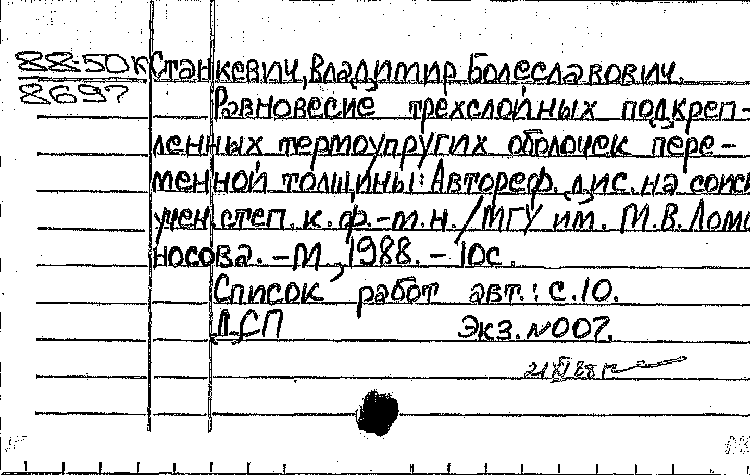 88:50к Станкевич, Владимир Болеславович.
8697 Равновесие трехслойных подкреп-
ленных термоупругих оболочек пере-
менной толщины: Автореф. дис. на соиск
учен. степ. к. ф.-м.н./МГУ им. М.В. Ломо
носова. -М, 1988. - 10с.
Список работ авт.: с.10.
ДСП Экз. №007.